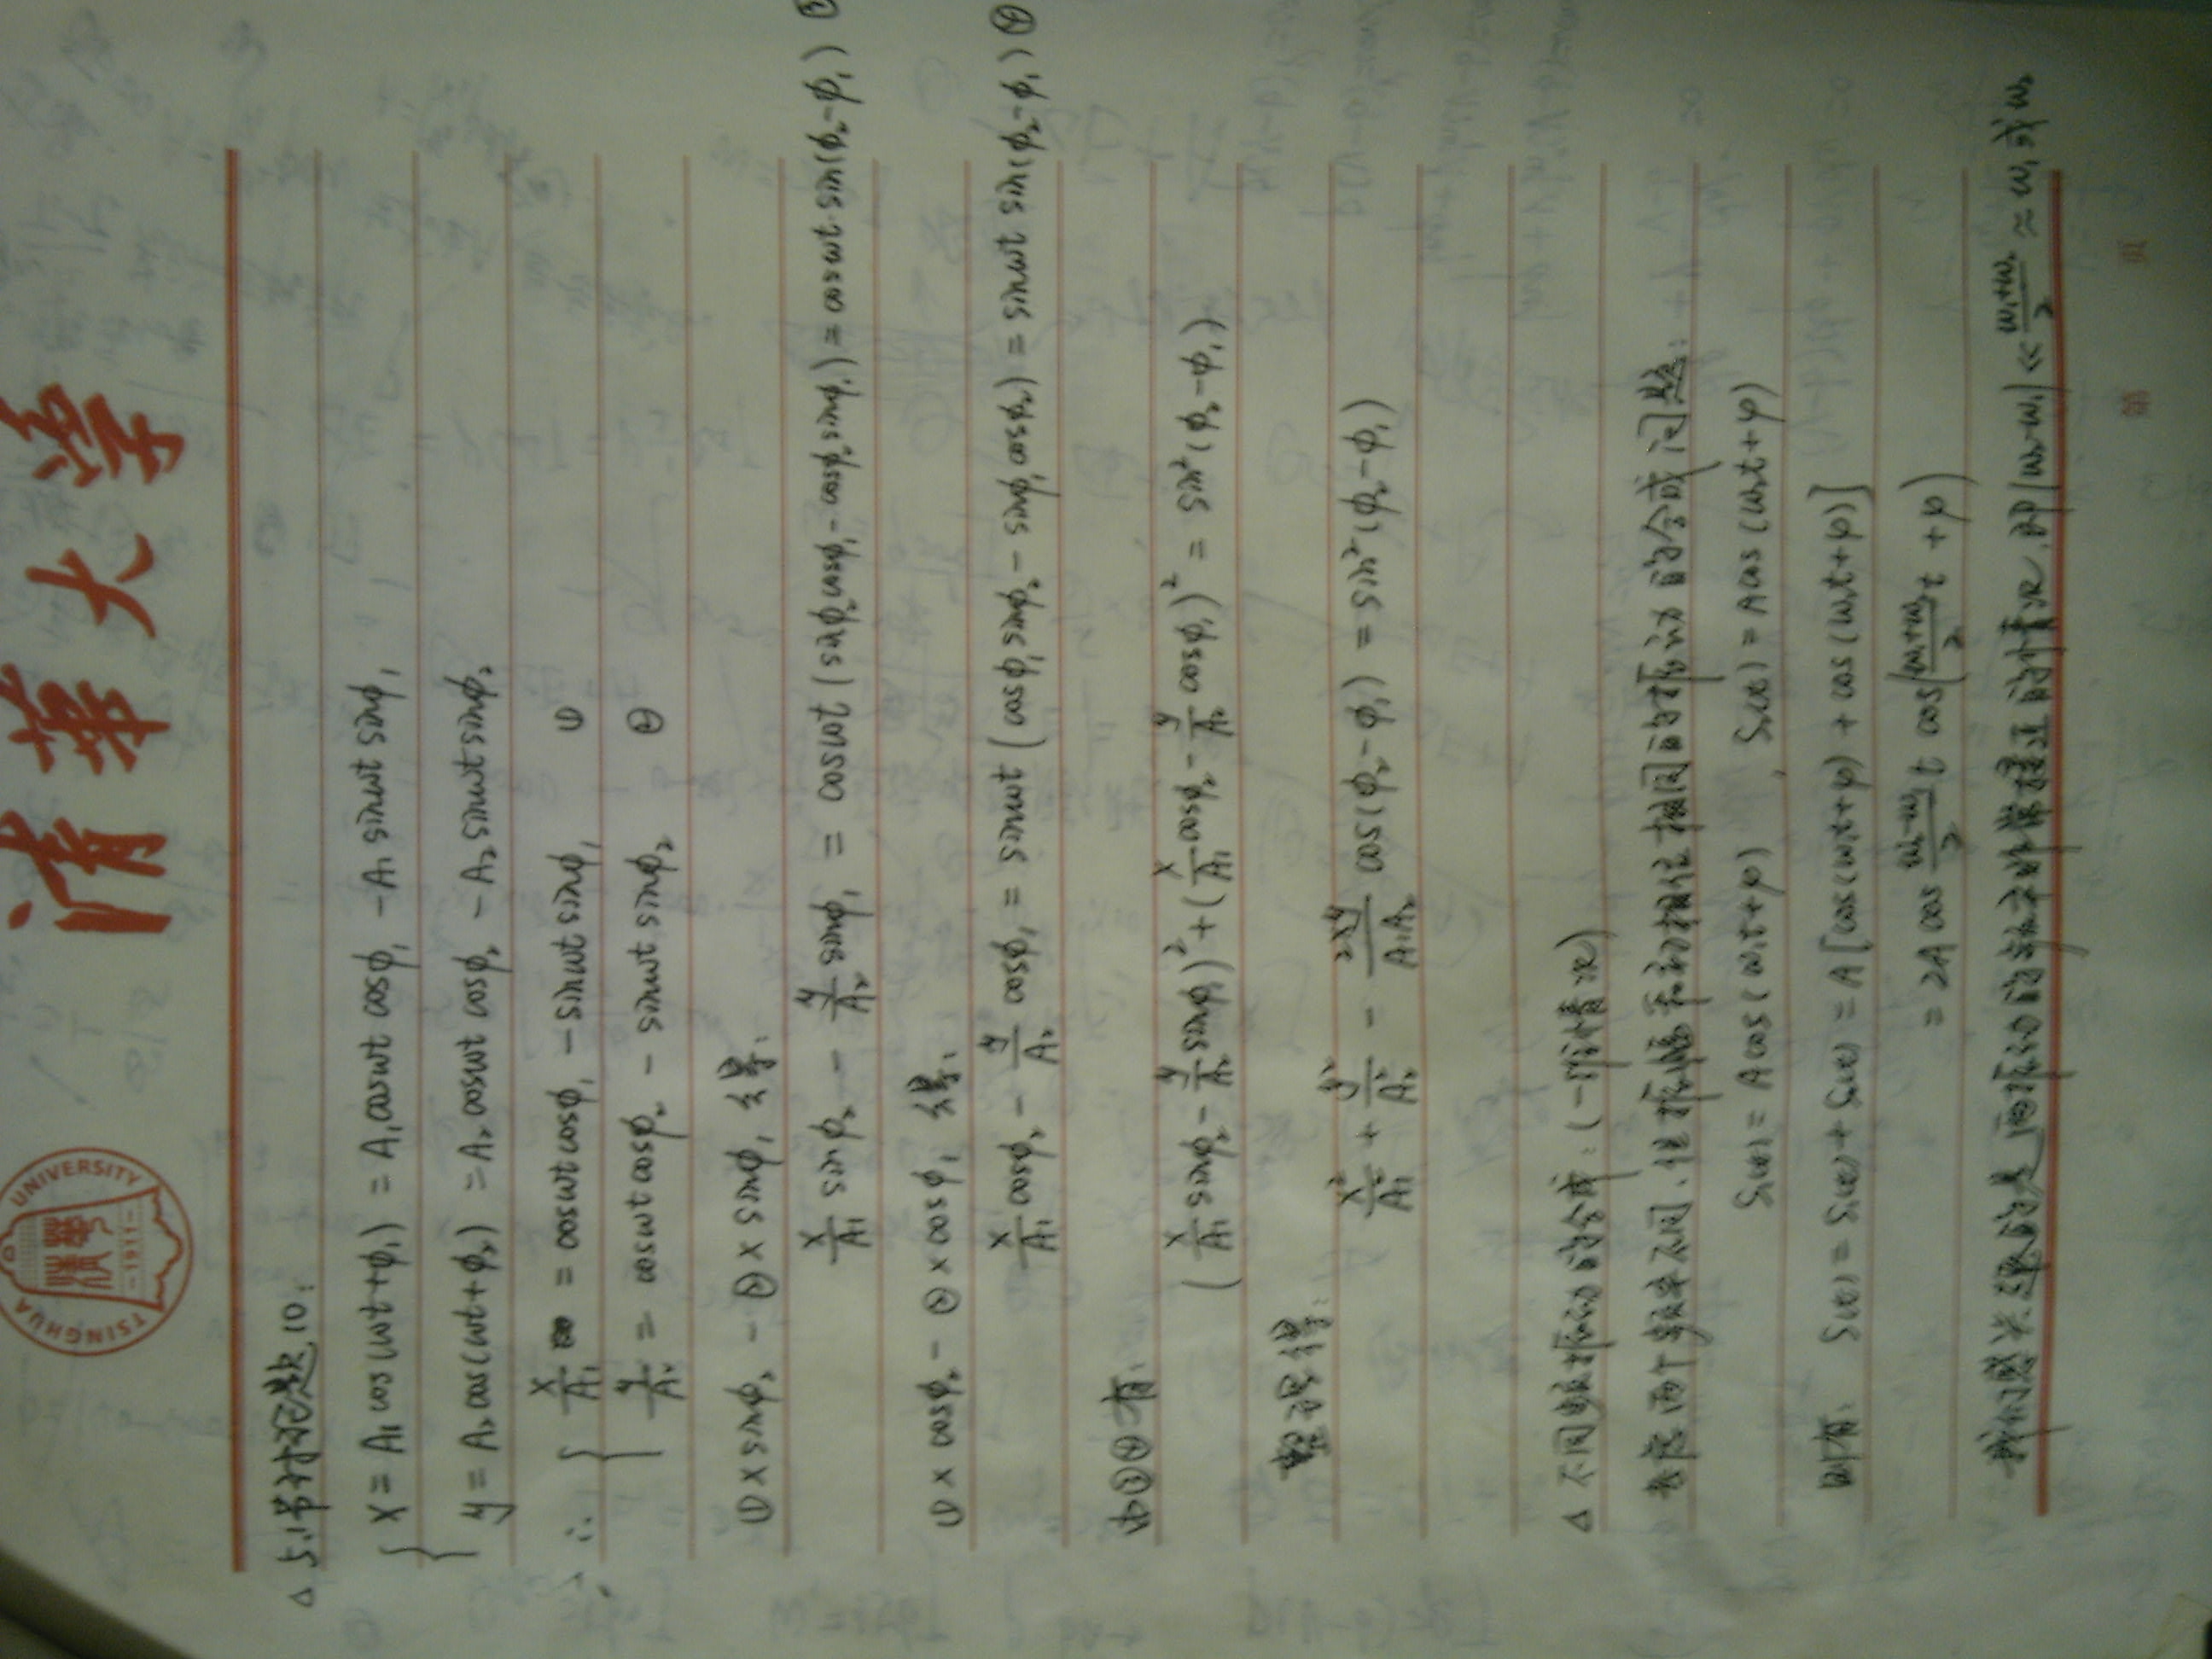 TSINGHUA UNIVERSITY
清華
-1911-
清華大学
△ 5.1节讨论题10:
x = A₁cos(ωt+ϕ₁) = A₁cosωt cosϕ₁ - A₁ sinωt sinϕ₁
y = A₂cos(ωt+ϕ₂) = A₂ cosωt cosϕ₂ - A₂ sinωt sinϕ₂
∴ x/A₁ = cosωt cosϕ₁ - sinωt sinϕ₁ ①
y/A₂ = cosωt cosϕ₂ - sinωt sinϕ₂ ②
①×sinϕ₂ - ②×sinϕ₁ 得:
x/A₁ sinϕ₂ - y/A₂ sinϕ₁ = cosωt (sinϕ₂cosϕ₁ - cosϕ₂sinϕ₁) = cosωt·sin(ϕ₂-ϕ₁) ③
①×cosϕ₂ - ②×cosϕ₁ 得:
x/A₁ cosϕ₂ - y/A₂ cosϕ₁ = sinωt (cosϕ₁ sinϕ₂ - sinϕ₁ cosϕ₂) = sinωt sin(ϕ₂-ϕ₁) ④
由③④有:
(x/A₁ sinϕ₂ - y/A₂ sinϕ₁)² + (x/A₁ cosϕ₂ - y/A₂ cosϕ₁)² = sin²(ϕ₂-ϕ₁)
整理得:
x²/A₁² + y²/A₂² - 2xy/A₁A₂ cos(ϕ₂-ϕ₁) = sin²(ϕ₂-ϕ₁)
△ 不同频振动的合成:(一维情况)
考虑两个频率不同、但振幅和初相位相同的振动的合成问题:
S₁(t) = Acos(ω₁t+φ), S₂(t) = Acos(ω₂t+φ)
则有: S(t) = S₁(t) + S₂(t) = A[cos(ω₁t+φ) + cos(ω₂t+φ)]
= 2A cos (ω₂-ω₁)/2 t cos((ω₁+ω₂)/2 t + φ)
我们感兴趣的是两振动的频率非常接近的情况,即|ω₂-ω₁| ≪ (ω₁+ω₂)/2 ≈ ω₁或ω₂
第 页